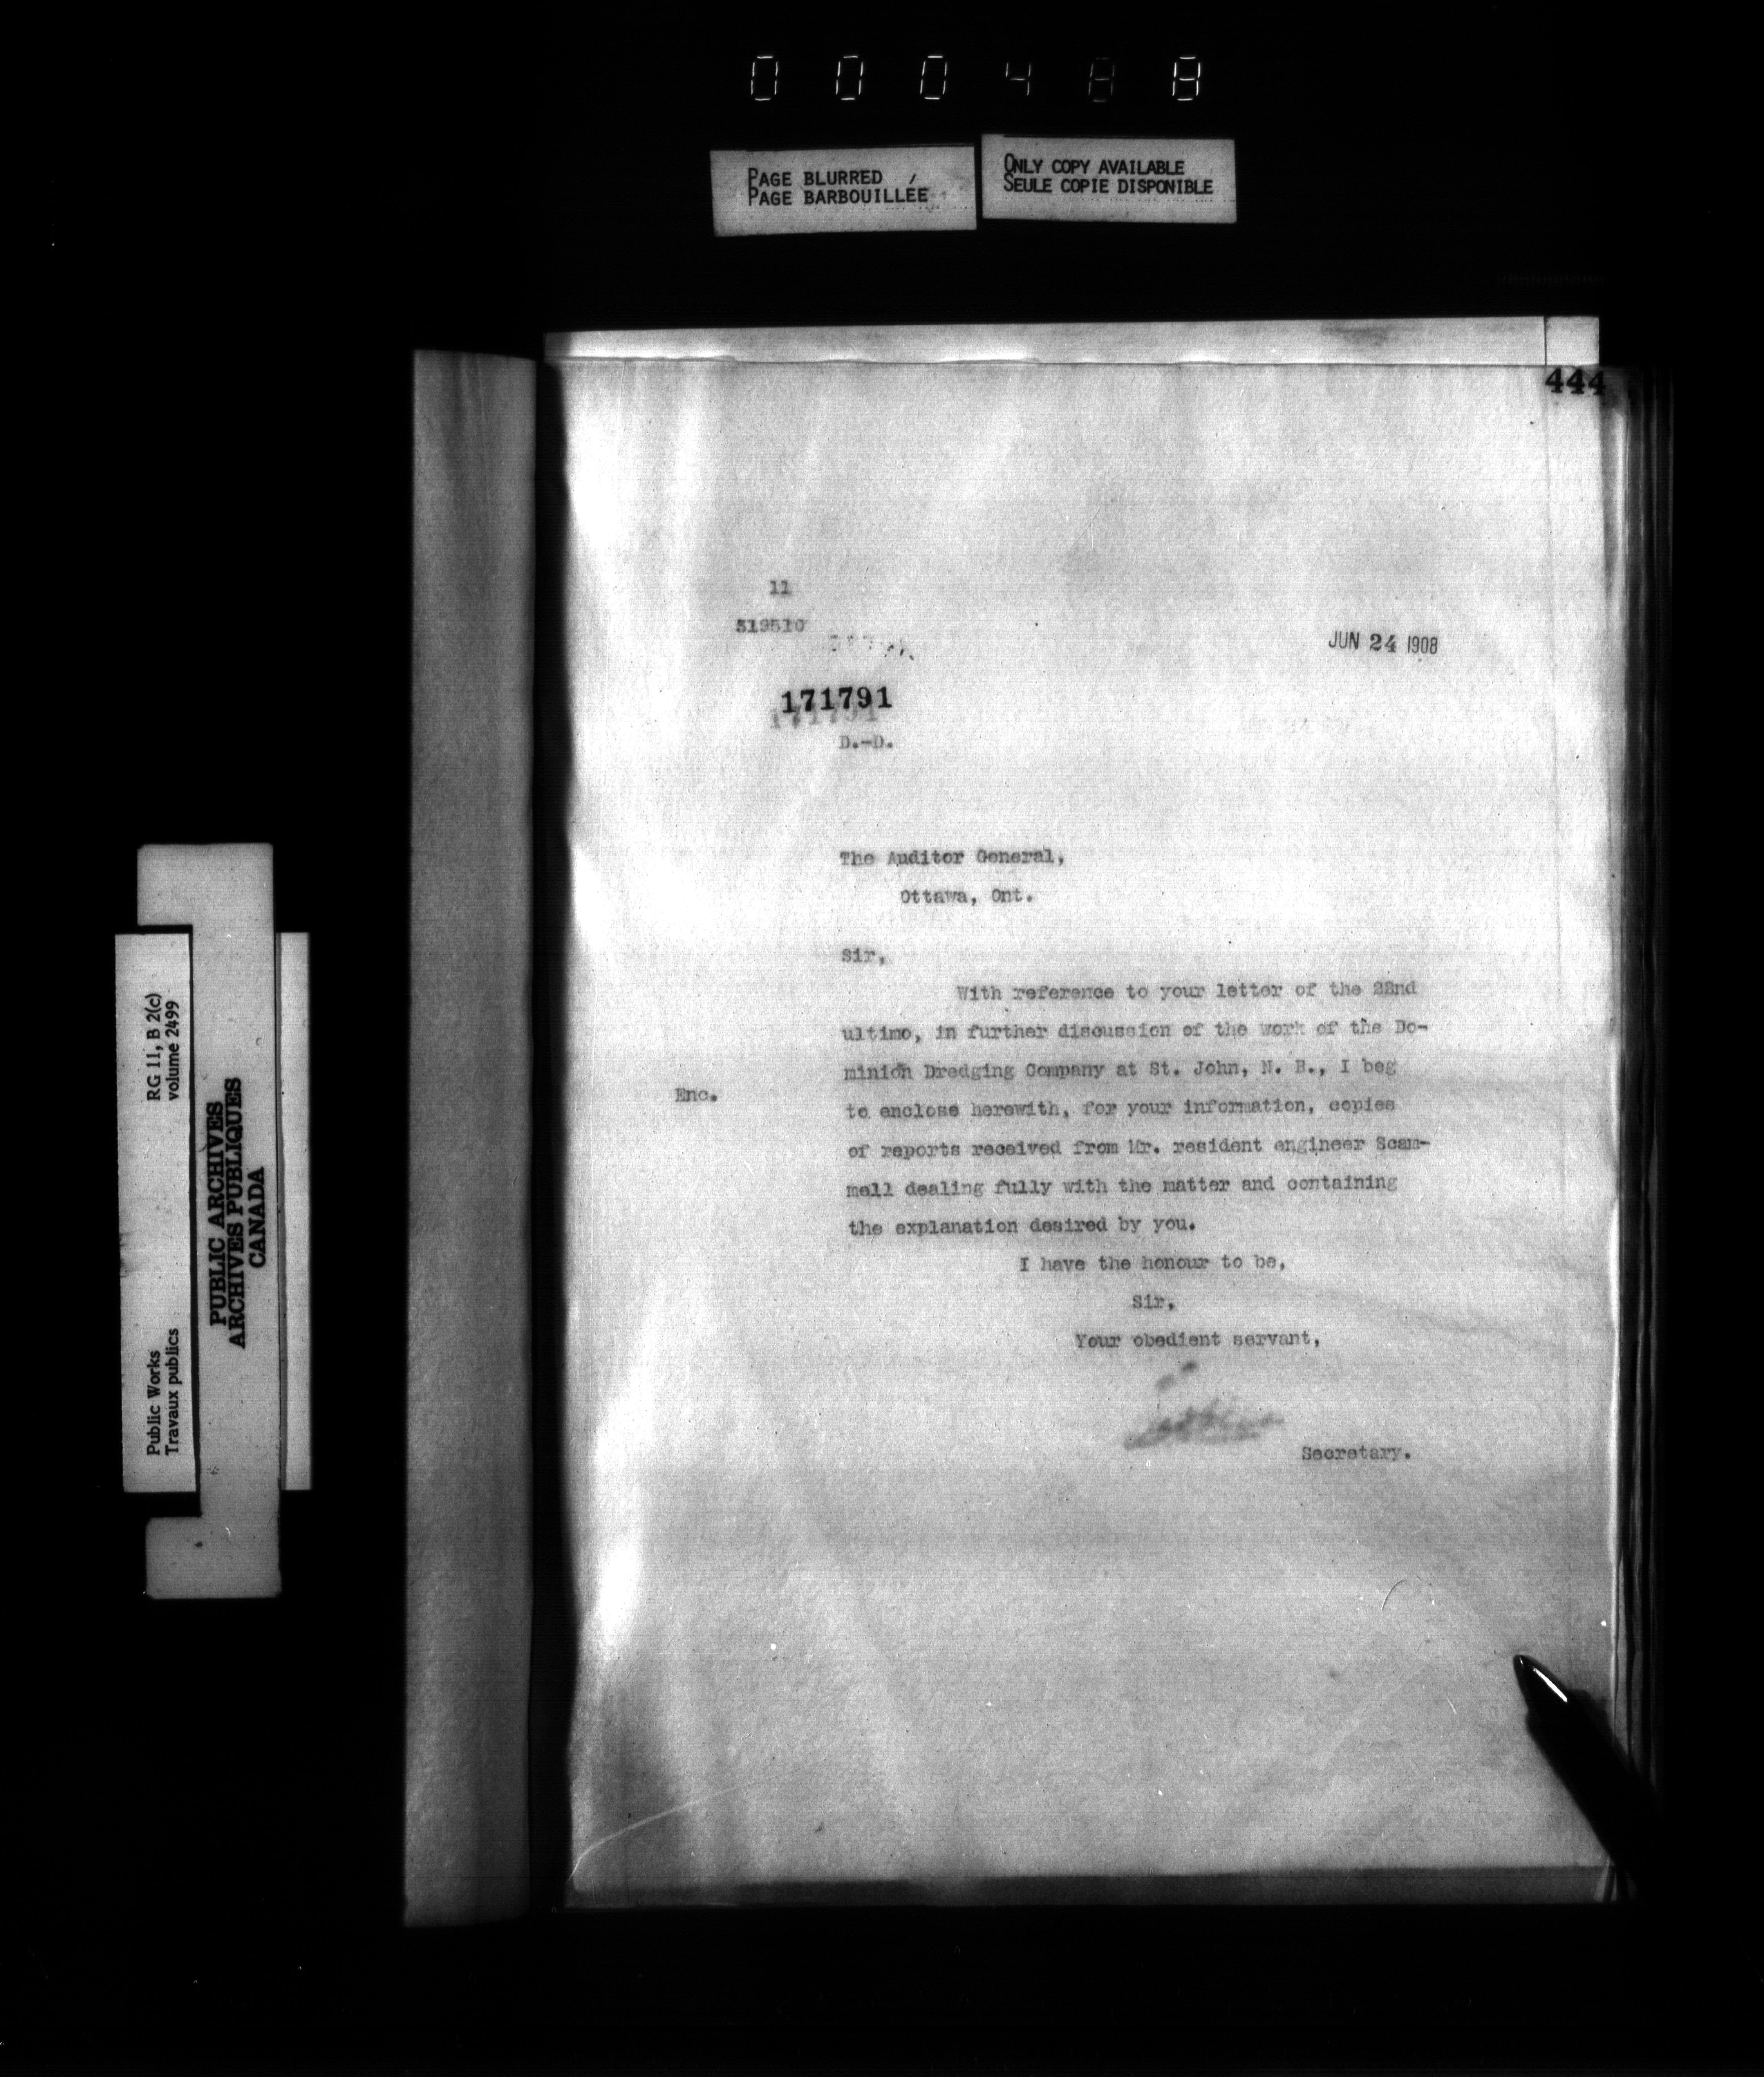 000488
PAGE BLURRED
PAGE BARBOUILLÉE
ONLY COPY AVAILABLE
SEULE COPIE DISPONIBLE
444
11
319510
JUN 24 1908
171791
171791
D.-D.
The Auditor General,
Ottawa, Ont.
Sir,
With reference to your letter of the 22nd
ultimo, in further discussion of the work of the Do-
minion Dredging Company at St. John, N. B., I beg
Enc.
to enclose herewith, for your information, copies
of reports received from Mr. resident engineer Scam-
mell dealing fully with the matter and containing
the explanation desired by you.
I have the honour to be,
Sir,
Your obedient servant,
Secretary.
Public Works
Travaux publics
RG 11, B 2(c)
volume 2499
PUBLIC ARCHIVES
ARCHIVES PUBLIQUES
CANADA